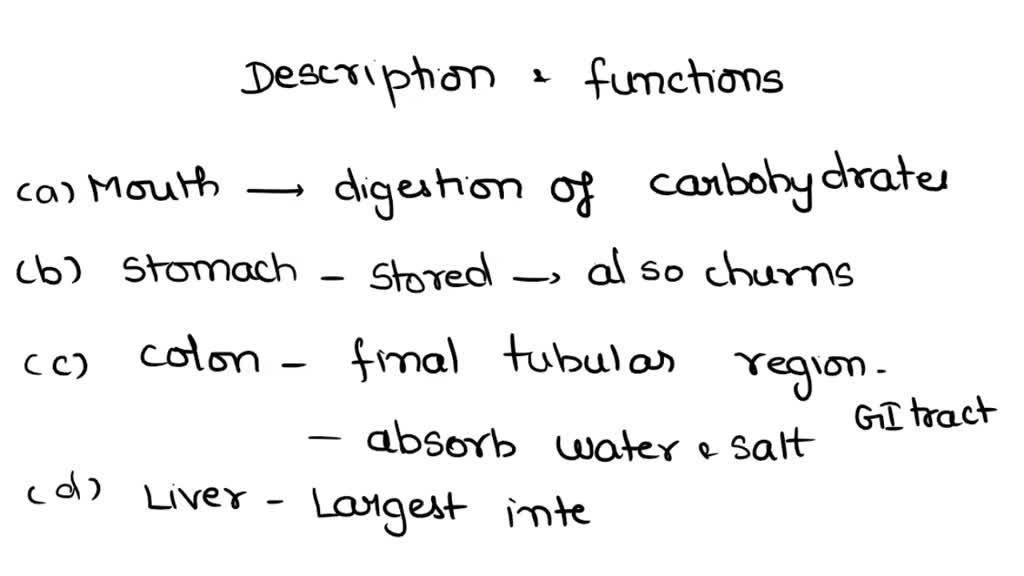 Description & functions
(a) Mouth → digestion of carbohydrates
(b) Stomach - Stored → also churns
(c) colon - final tubular region.
GI tract
- absorb water & salt
(d) Liver - Largest inte